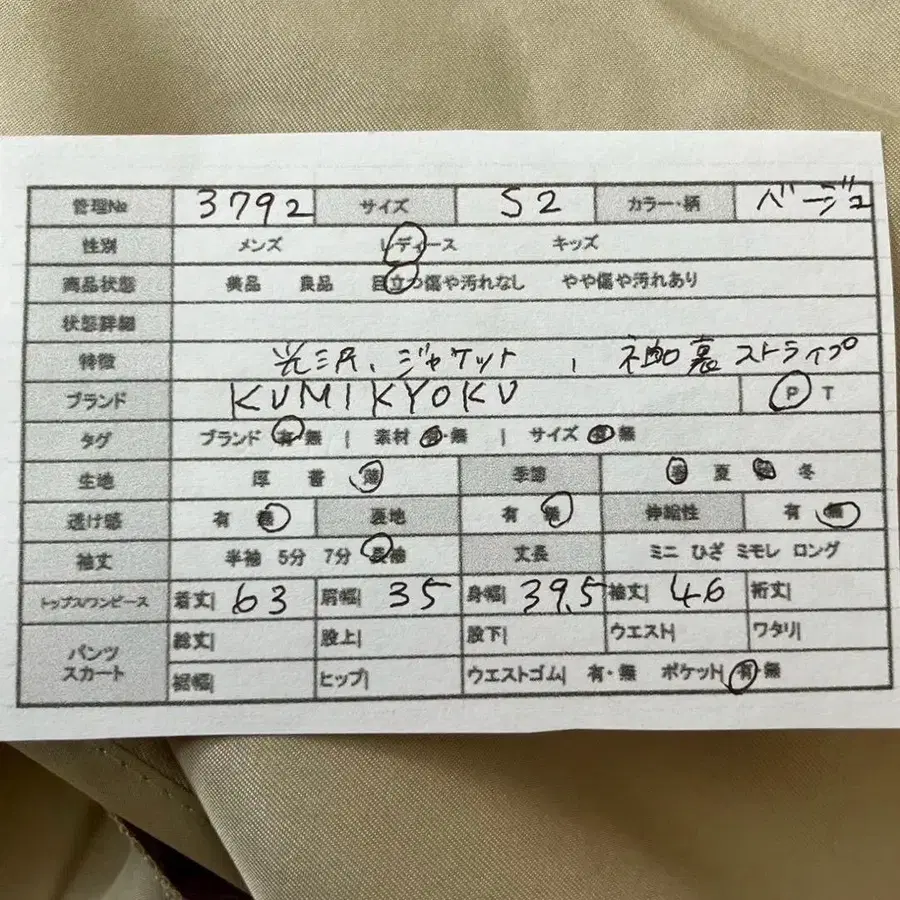 管理№ 3792 サイズ S2 カラー・柄 ベージュ
性別 メンズ レディース キッズ
商品状態 美品 良品 目立つ傷や汚れなし やや傷や汚れあり
状態詳細
特徴 光沢、ジャケット、袖裏ストライプ
ブランド KUMIKYOKU P T
タグ ブランド 有・無 | 素材 有・無 | サイズ 有・無
生地 厚 普 薄 季節 春 夏 秋 冬
透け感 有 無 裏地 有 無 伸縮性 有 無
袖丈 半袖 5分 7分 長袖 丈長 ミニ ひざ ミモレ ロング
トップス/ワンピース 着丈| 63 肩幅| 35 身幅| 39.5 袖丈| 46 裄丈|
パンツ スカート 総丈| 股上| 股下| ウエスト| ワタリ|
裾幅| ヒップ| ウエストゴム| 有・無 ポケット| 有・無